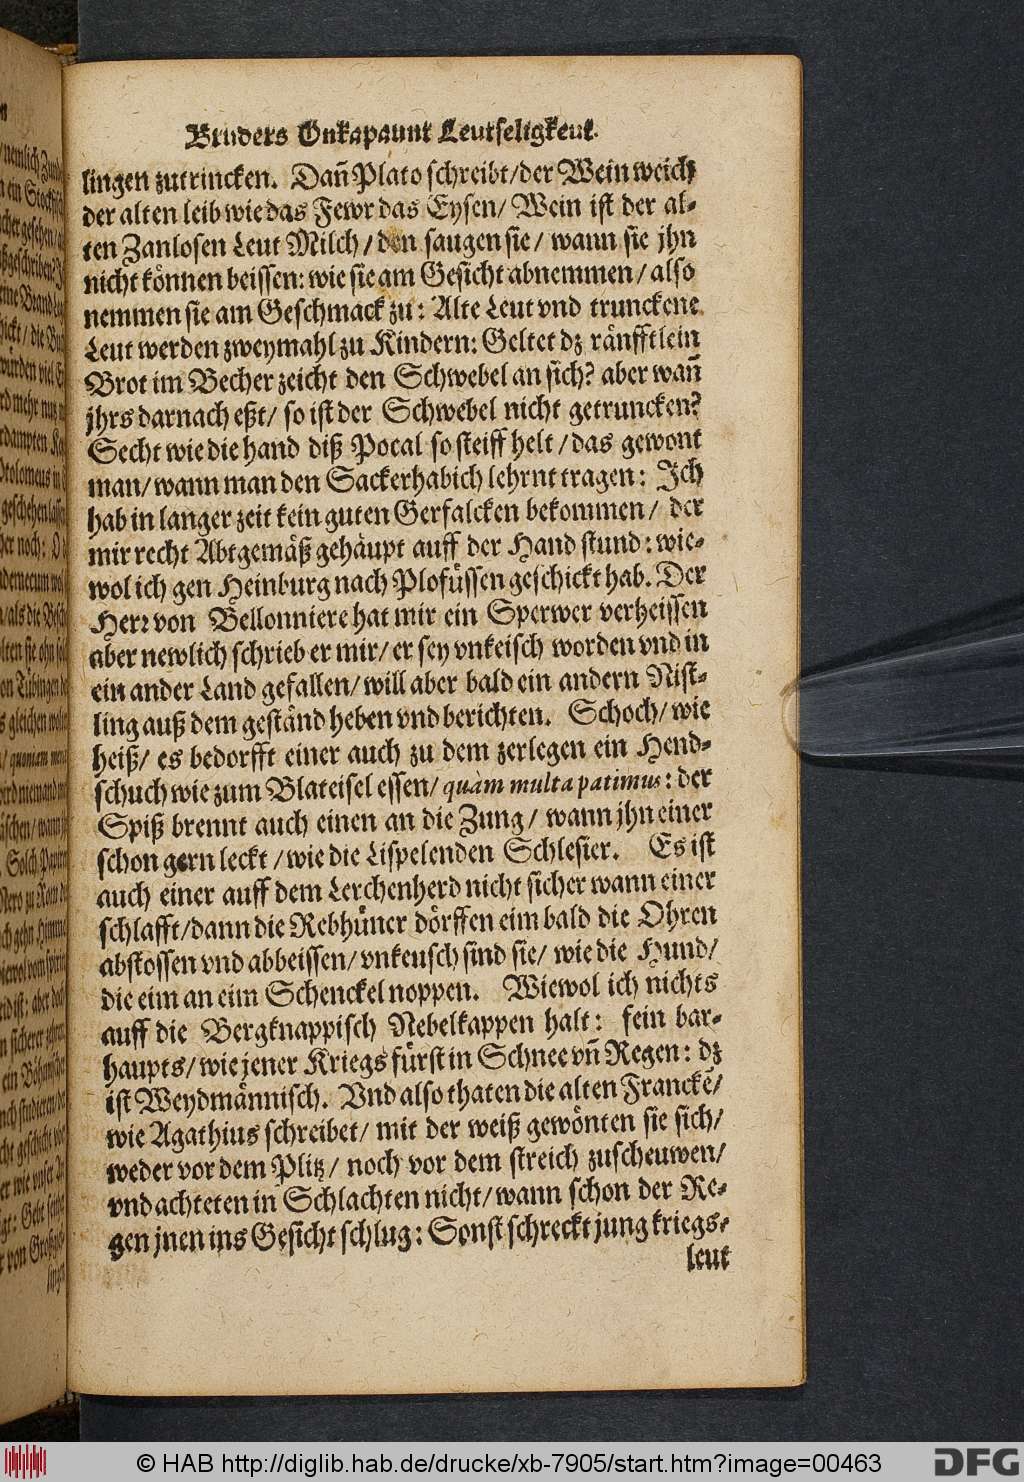 Bruders Onkapaunt Leutseligkeyt.
lingen zutrincken. Dañ Plato schreibt/der Wein weich
der alten leib wie das Fewr das Eysen/ Wein ist der al-
ten Zanlosen Leut Milch/den saugen sie/ wann sie jhn
nicht können beissen: wie sie am Gesicht abnemmen/ also
nemmen sie am Geschmack zu: Alte Leut vnd trunckene
Leut werden zweymahl zu Kindern: Geltet dz ränfftlein
Brot im Becher zeicht den Schwebel an sich? aber wañ
jhrs darnach eßt/ so ist der Schwebel nicht getruncken?
Secht wie die hand diß Pocal so steiff helt/das gewont
man/wann man den Sackerhabich lehrnt tragen: Ich
hab in langer zeit kein guten Gerfalcken bekommen/ der
mir recht Abtgemäß gehäupt auff der Hand stund: wie-
wol ich gen Heinburg nach Plofüssen geschickt hab. Der
Herr von Bellonniere hat mir ein Sperwer verheissen
aber newlich schrieb er mir/er sey vnkeisch worden vnd in
ein ander Land gefallen/will aber bald ein andern Nist-
ling auß dem geständ heben vnd berichten. Schoch/wie
heiß/ es bedorfft einer auch zu dem zerlegen ein Hend-
schuch wie zum Blateisel essen/quàm multa patimus: der
Spiß brennt auch einen an die Zung/ wann jhn einer
schon gern leckt/wie die Lispelenden Schlesier. Es ist
auch einer auff dem Lerchenherd nicht sicher wann einer
schlafft/dann die Rebhüner dörffen eim bald die Ohren
abstossen vnd abbeissen/vnkeusch sind sie/ wie die Hund/
die eim an eim Schenckel noppen. Wiewol ich nichts
auff die Bergknappisch Nebelkappen halt: fein bar-
haupts/wie jener Kriegsfürst in Schnee vñ Regen: dz
ist Weydmännisch. Vnd also thaten die alten Franckē/
wie Agathius schreibet/ mit der weiß gewönten sie sich/
weder vor dem Plitz/ noch vor dem streich zuscheuwen/
vnd achteten in Schlachten nicht/wann schon der Re-
gen jnen ins Gesicht schlug: Sonst schreckt jung kriegs-
leut
© HAB http://diglib.hab.de/drucke/xb-7905/start.htm?image=00463
DFG